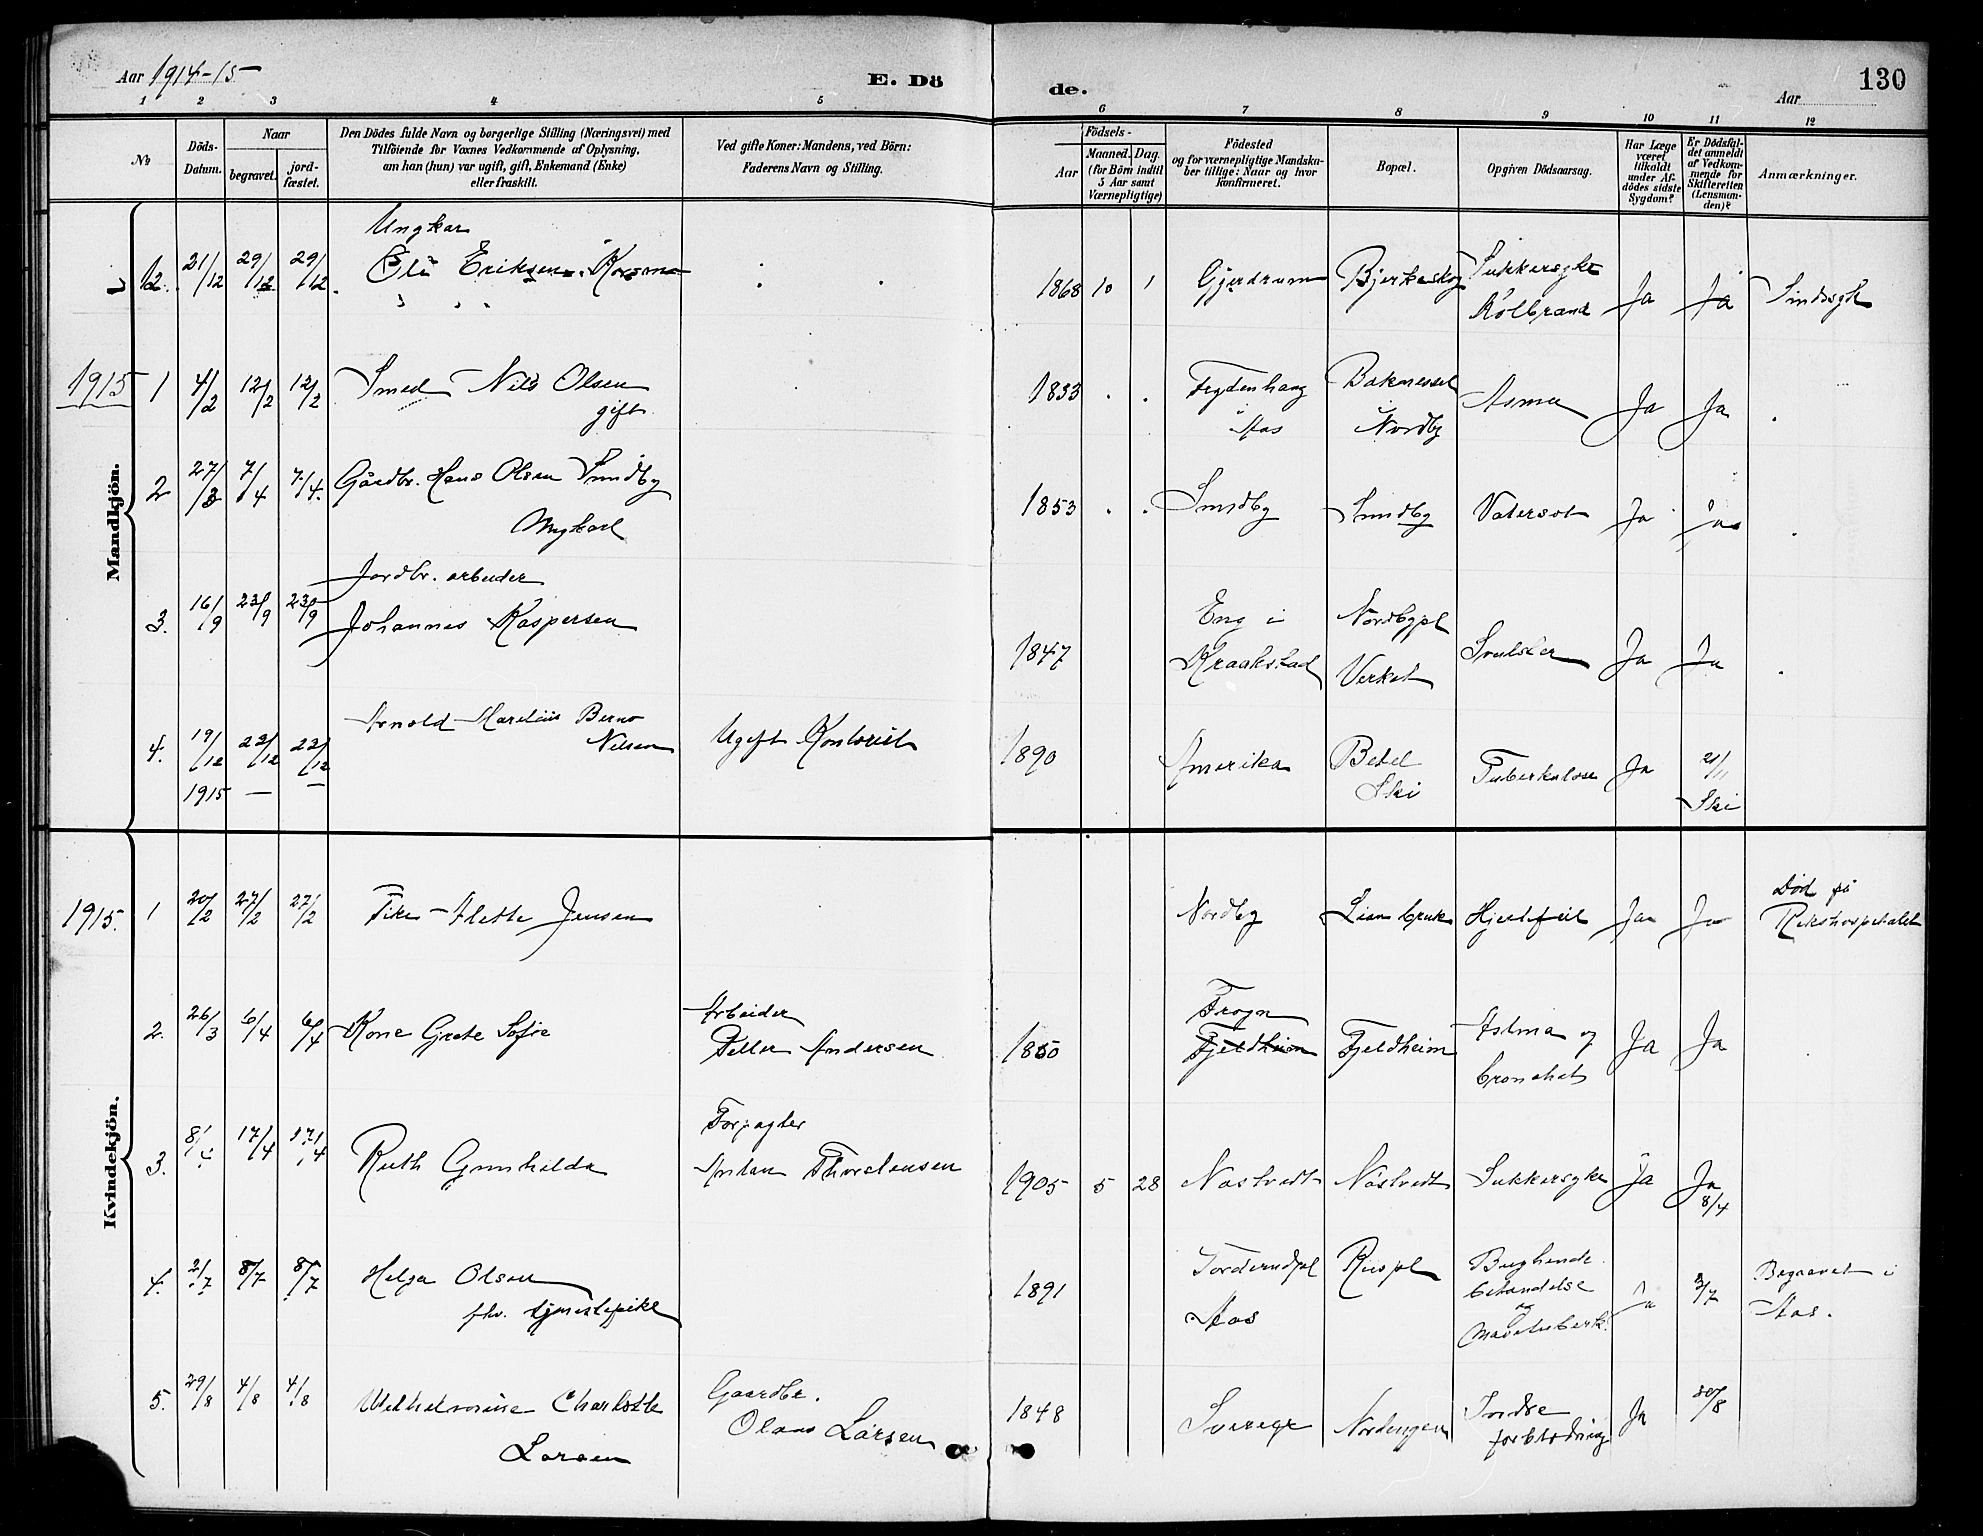 Aar 1914-15
E. Dö
de.
Aar
130
1 2 3 4 5 6 7 8 9 10 11 12
No
Döds-
Datum.
Naar
begravet.
jord-
fæstet.
Den Dödes fulde Navn og borgerlige Stilling (Næringsvei) med
Tilföiende for Voxnes Vedkommende af Oplysning,
om han (hun) var ugift, gift, Enkemand (Enke)
eller fraskilt.
Ved gifte Koner: Mandens, ved Börn:
Faderens Navn og Stilling.
Födsels-
Aar
Maaned. Dag.
(for Börn indtil
5 Aar samt
Værnepligtige)
Födested
og for værnepligtige Mandska-
ber tillige: Naar og hvor
konfirmeret.
Bopæl.
Opgiven Dödsaarsag.
Har Læge
været
tilkaldt
under Af-
dödes sidste
Sygdom?
Er Dödsfal-
det anmeldt
af Vedkom-
mende for
Skifteretten
(Lensman-
den)?
Anmærkninger.
Mandkjön.
Ungkar
12. 21/12 29/12 29/12 Eriksen 1868 10 1 Gjerdrum Bjerkeskog Sukkersyke
Kolbrand Ja Ja Sindssyk
1915 1 4/2 12/2 12/2 Smed Nils Olsen
gift
1833 . . Aas Nordby Asma Ja Ja
2 27/3 7/4 7/4 Gårdbr. Hans Olsen Sundby
Ungkarl
1853 . . Sundby Sundby Vatersot Ja ja
Jordbr. arbeider
3. 16/9 23/9 23/9 Johannes Kaspersen
1847 Eng i
Kraakstad
Nordbypl
Verket
Ja Ja
4. 19/12 22/12 22/12 Arnold Berno
Nilsen
Ugift Kontorist
1890 Amerika Betel
Ski
Tuberkulose Ja 21/11
Ski
1915 — —
Kvindekjön.
1915. 1 20/2 27/2 27/2 Pike Alette Jensen
Nordby Lian bruk Hjertefeil Ja Ja Död på
Rikshospitalet
2. 26/3 6/4 6/4 Kone Grete Sofie
Arbeider
Petter Andersen
1850 Frogn
Fjeldheim
Fjeldheim Astma og
bronchit
Ja Ja
3. 8/4 17/4 17/4 Ruth Gunhilda
Forpagter
Anton Thorstensen
1905 5 28 Nöstvedt Nöstvedt Sukkersyke Ja Ja
8/4
4. 2/7 8/7 8/7 Helga Olsen
fhv. tjenestepike
1891
Aas
Riispl
betændelse
og
Mavetuberk.
Ja 3/7 Begravet i
Aas.
5. 29/8 4/8 4/8 Wilhelmine Charlotte
Larsen
Gaardbr.
Olaus Larsen
1848 Sverige Nordengen Indre
forblödning
Ja 30/8